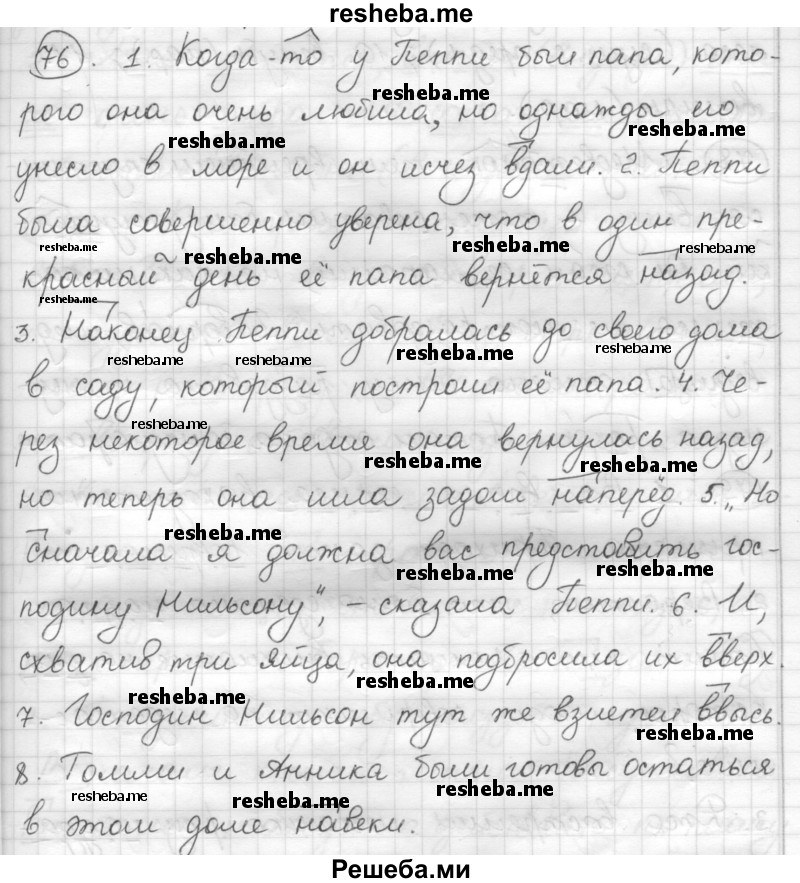 resheba.me
76. 1. Когда-то у Пеппи был папа, кото-
resheba.me
рого она очень любила, но однажды его
resheba.me resheba.me
унесло в море и он исчез вдали. 2. Пеппи
была совершенно уверена, что в один пре-
resheba.me resheba.me resheba.me resheba.me
красный день её папа вернётся назад.
resheba.me
3. Наконец Пеппи добралась до своего дома
resheba.me resheba.me resheba.me resheba.me
в саду, который построил её папа. 4. Че-
resheba.me
рез некоторое время она вернулась назад,
resheba.me resheba.me
но теперь она шла задом наперёд. 5. „Но
resheba.me
сначала я должна вас представить гос-
resheba.me resheba.me
подину Нильсону", – сказала Пеппи. 6. И,
схватив три яйца, она подбросила их вверх.
resheba.me resheba.me
7. Господин Нильсон тут же взлетел ввысь.
resheba.me
8. Томми и Анника были готовы остаться
resheba.me resheba.me resheba.me
в этом доме навеки.
Решеба.ми